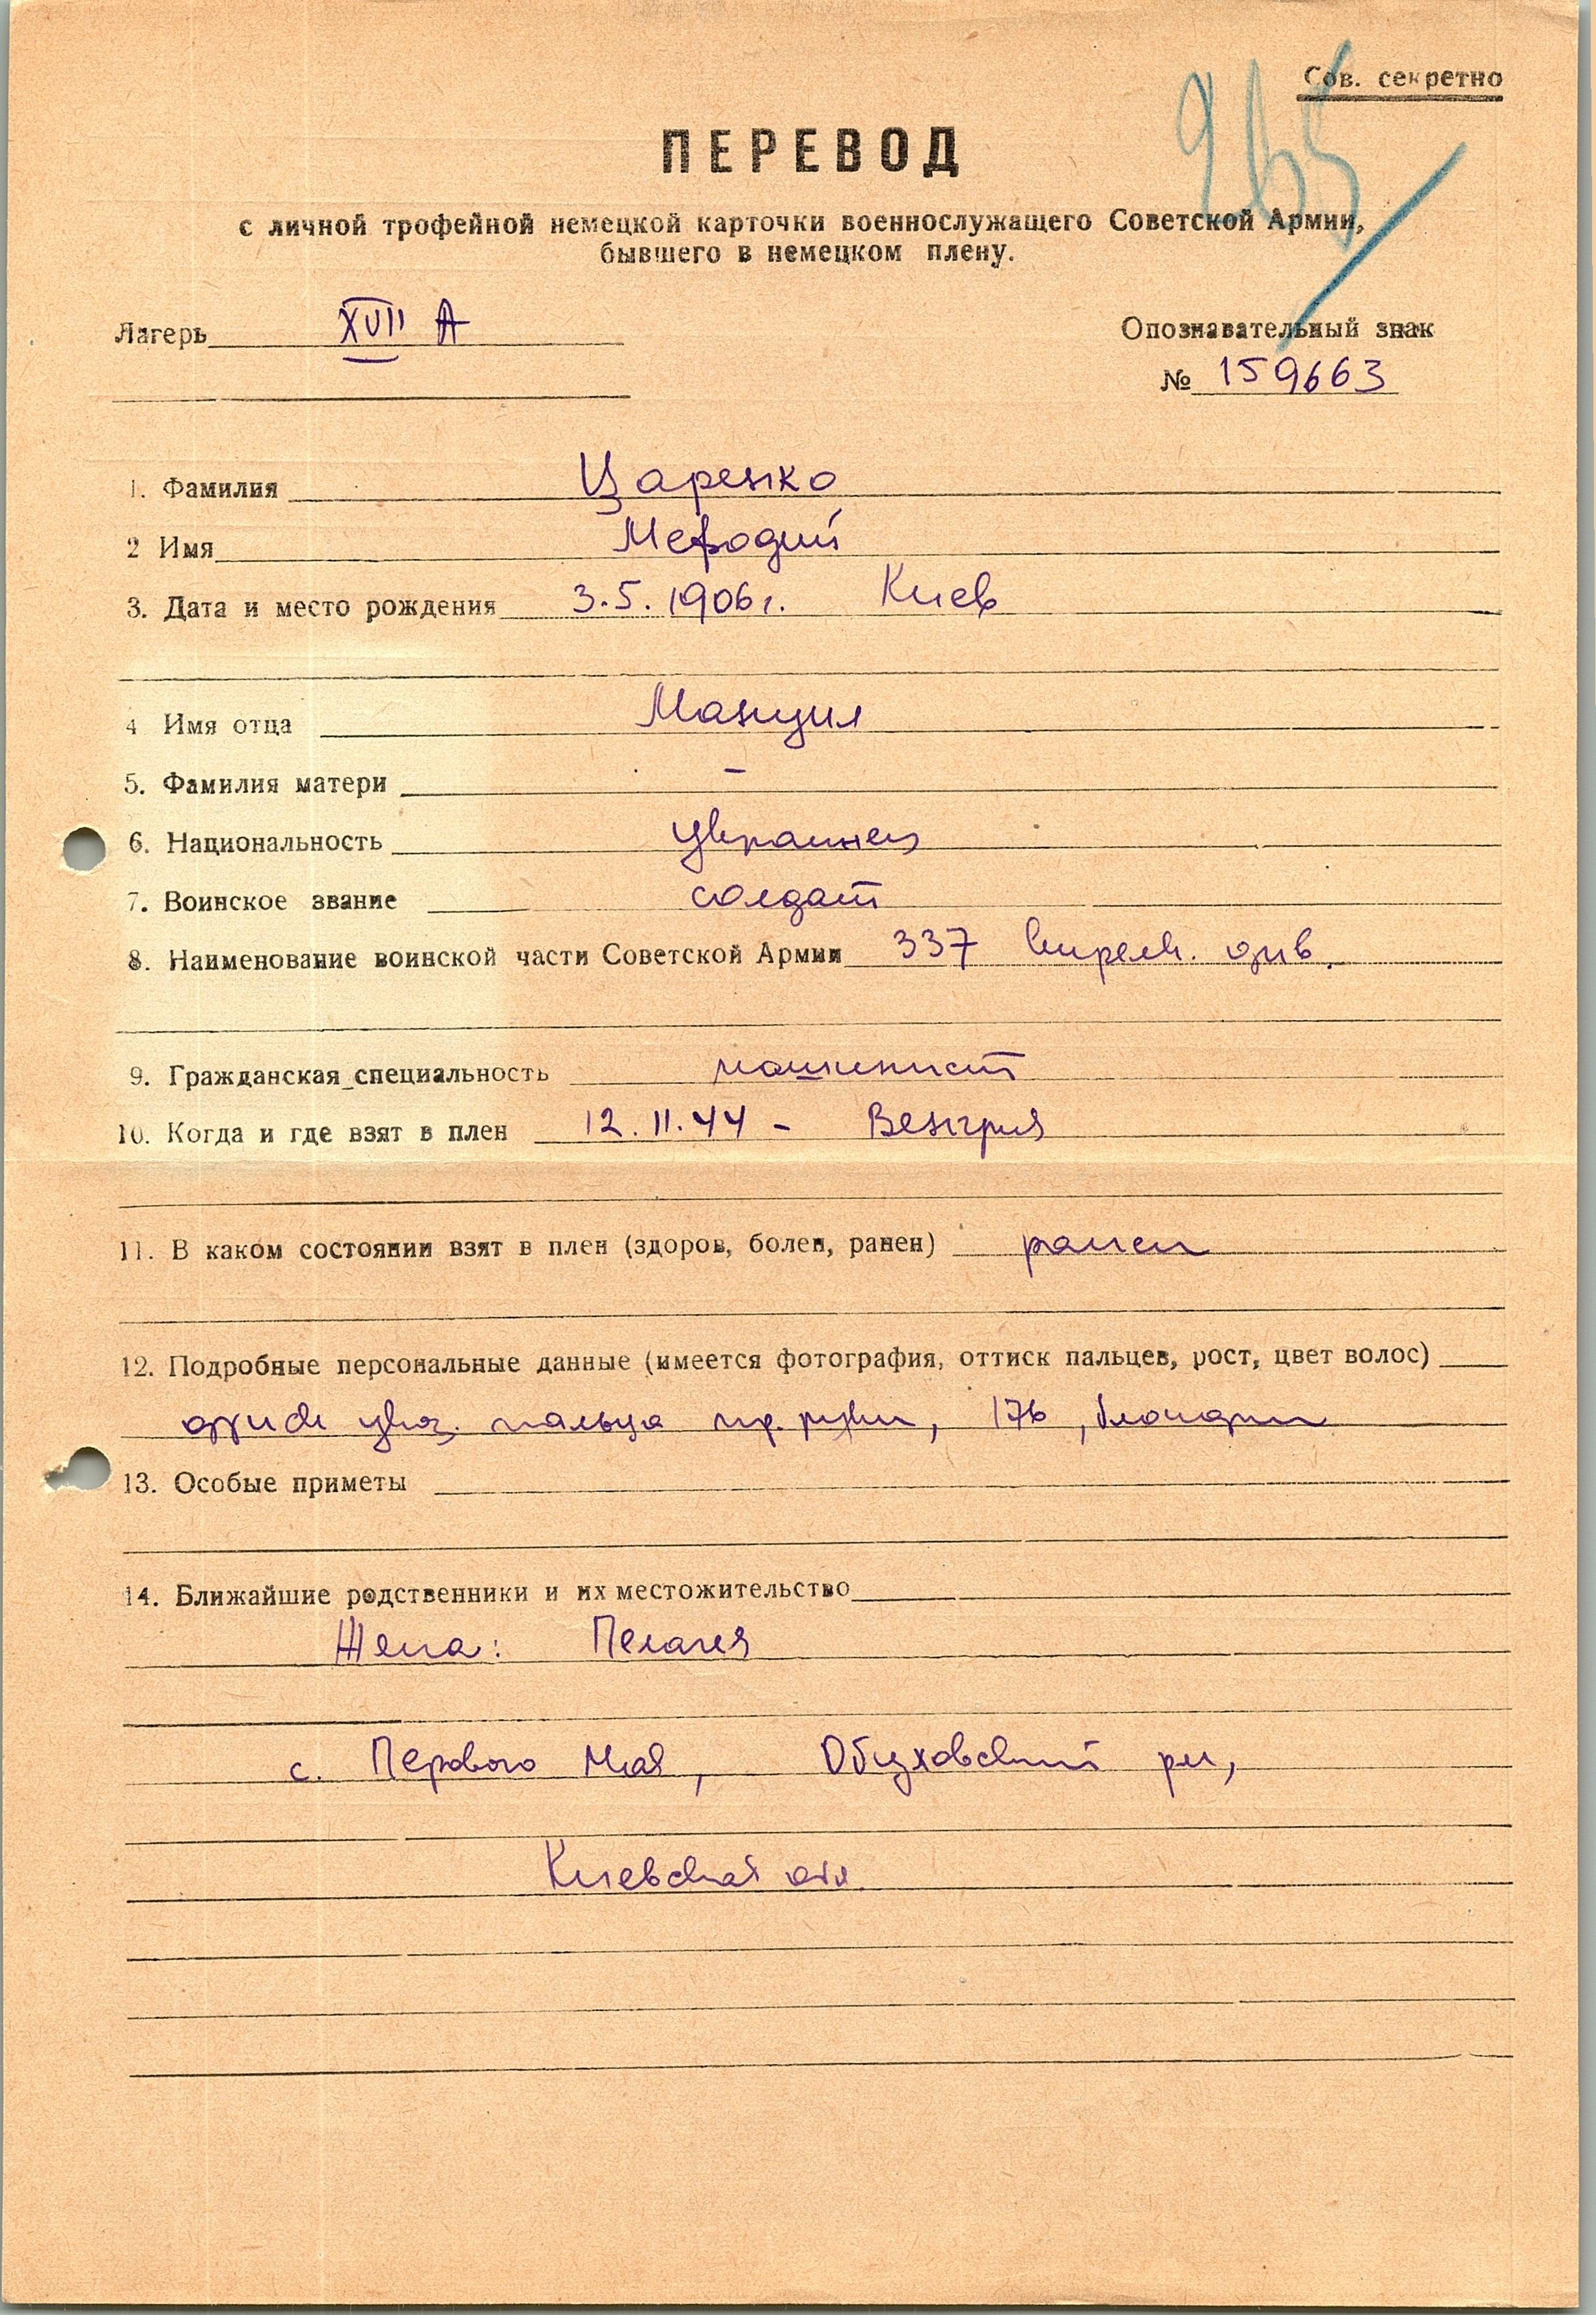 Сов. секретно
265
ПЕРЕВОД
с личной трофейной немецкой карточки военнослужащего Советской Армии,
бывшего в немецком плену.
Лагерь XVII А
Опознавательный знак
№ 159663
1. Фамилия Царенко
2 Имя Мефодий
3. Дата и место рождения 3.5.1906г. Киев
4 Имя отца Мануил
5. Фамилия матери –
6. Национальность украинец
7. Воинское звание солдат
8. Наименование воинской части Советской Армии 337 стрелк. див.
9. Гражданская специальность машинист
10. Когда и где взят в плен 12.11.44 - Венгрия
11. В каком состоянии взят в плен (здоров, болен, ранен) ранен
12. Подробные персональные данные (имеется фотография, оттиск пальцев, рост, цвет волос)
указ. пальца пр. руки, 176, блондин
13. Особые приметы
14. Ближайшие родственники и их местожительство
Жена: Пелагея
с. Первого Мая, Обуховский рн,
Киевская обл.